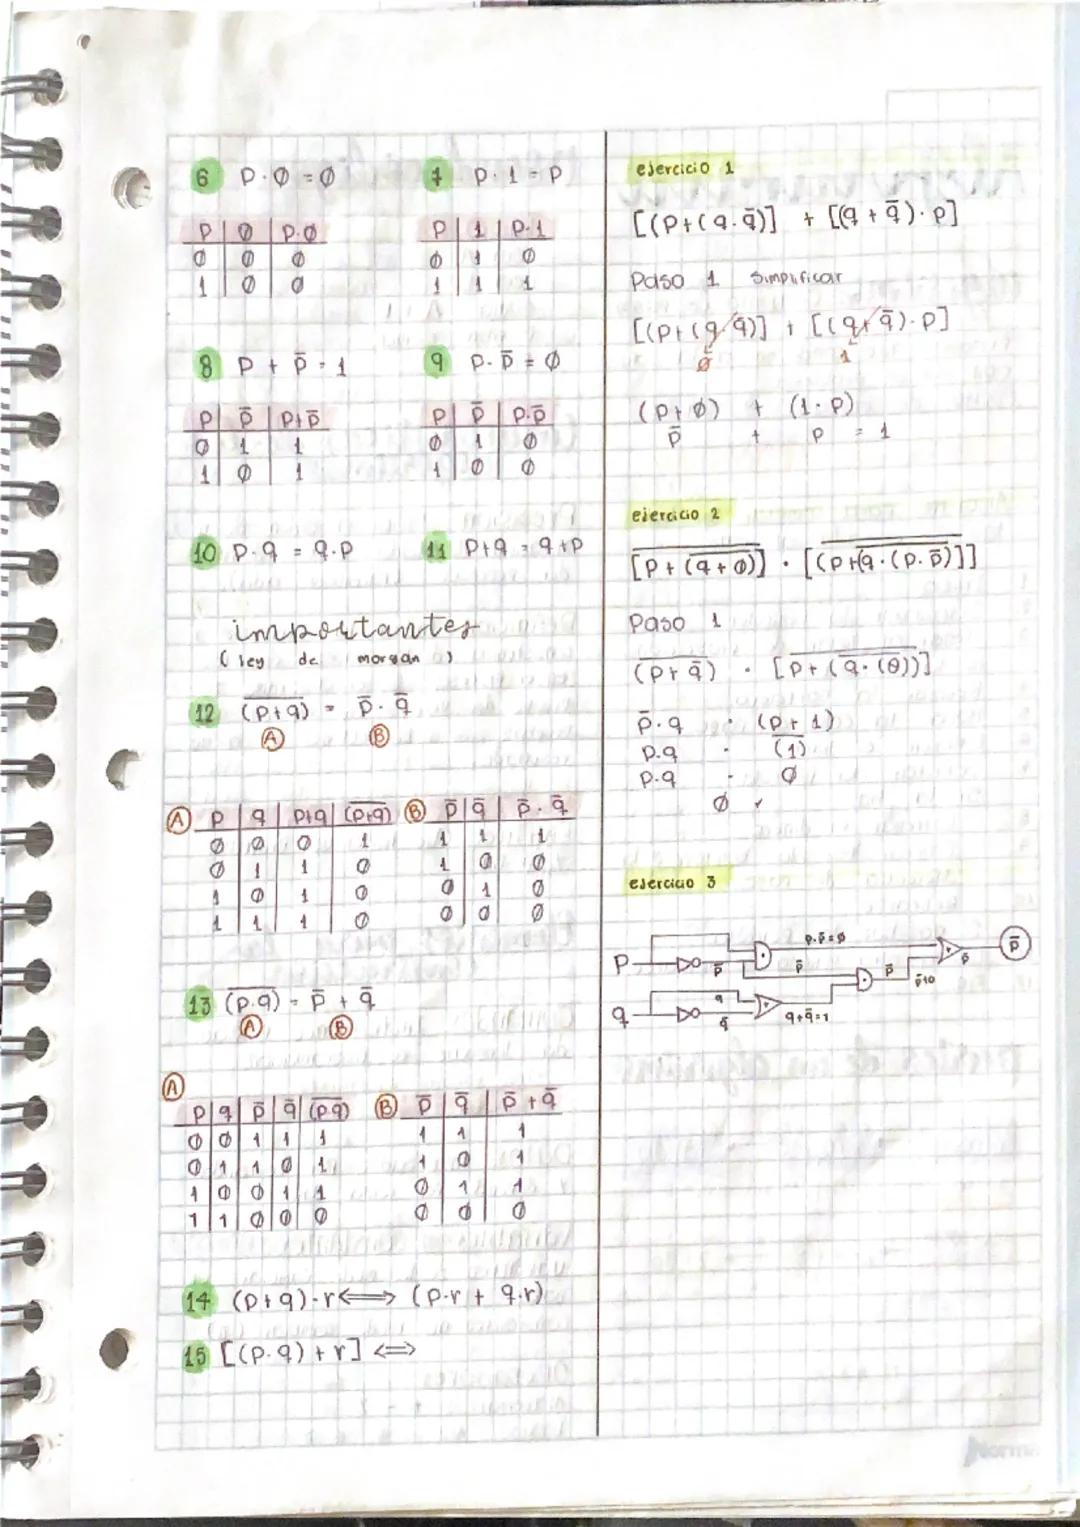 6 p · Ø = Ø
p | Ø | p.Ø
Ø | Ø | Ø
1 | Ø | Ø
7 p · 1 = p
p | 1 | p.1
Ø | 1 | Ø
1 | 1 | 1
8 p + p̄ = 1
p | p̄ | p+p̄
0 | 1 | 1
1 | Ø | 1
9 p. p̄ = Ø
p | p̄ | p.p̄
Ø | 1 | Ø
1 | Ø | Ø
10 p.q = q.p
11 p+q = q+p
importantes
( ley de morgan )
12 (p+q)̅ = p̄ . q̄
A B
A p | q | p+q | (p+q)̅
Ø | Ø | 0 | 1
Ø | 1 | 1 | Ø
1 | Ø | 1 | Ø
1 | 1 | 1 | Ø
B p̄ | q̄ | p̄ . q̄
1 | 1 | 1
1 | 0 | Ø
Ø | 1 | Ø
Ø | Ø | Ø
13 (p.q)̅ = p̄ + q̄
A B
A
p | q | p̄ | q̄ | (p.q)̅
0 | Ø | 1 | 1 | 1
Ø | 1 | 1 | Ø | 1
1 | Ø | 0 | 1 | 1
1 | 1 | Ø | Ø | Ø
B p̄ | q̄ | p̄ + q̄
1 | 1 | 1
1 | Ø | 1
Ø | 1 | 1
Ø | Ø | Ø
14 (p+q).r ⟺ (p.r + q.r)
15 [(p.q) + r] ⟺
ejercicio 1
[(p+(q.q̄)] + [(q + q̄). p]
Paso 1 Simplificar
[(p+(q.q̄)] + [(q+q̄).p]
Ø 1
(p+Ø) + (1.p)
p̄ + p = 1
ejercicio 2
[p + (q+Ø)̅]̅ · [(p+(q.(p.p̄)̅]]
Paso 1
(p+q̄)̅ . [p+(q.(0))̅]̅
p̄.q . (p+1)̅
p.q . (1)̅
p.q . Ø
Ø
ejercicio 3
p.p̄=Ø
p̄
p
p̄
p̄
p̄
p̄
p̄+0
q
q
q̄
q+q̄=1
Norma